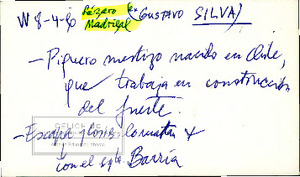 W 8-4-80 Pázaro Madrigal (x GUSTAVO SILVA)
- Piquero mestizo nacido en Chile,
que trabaja en construcción
del fuerte.
- Escapa y los
con el sgto. Barría